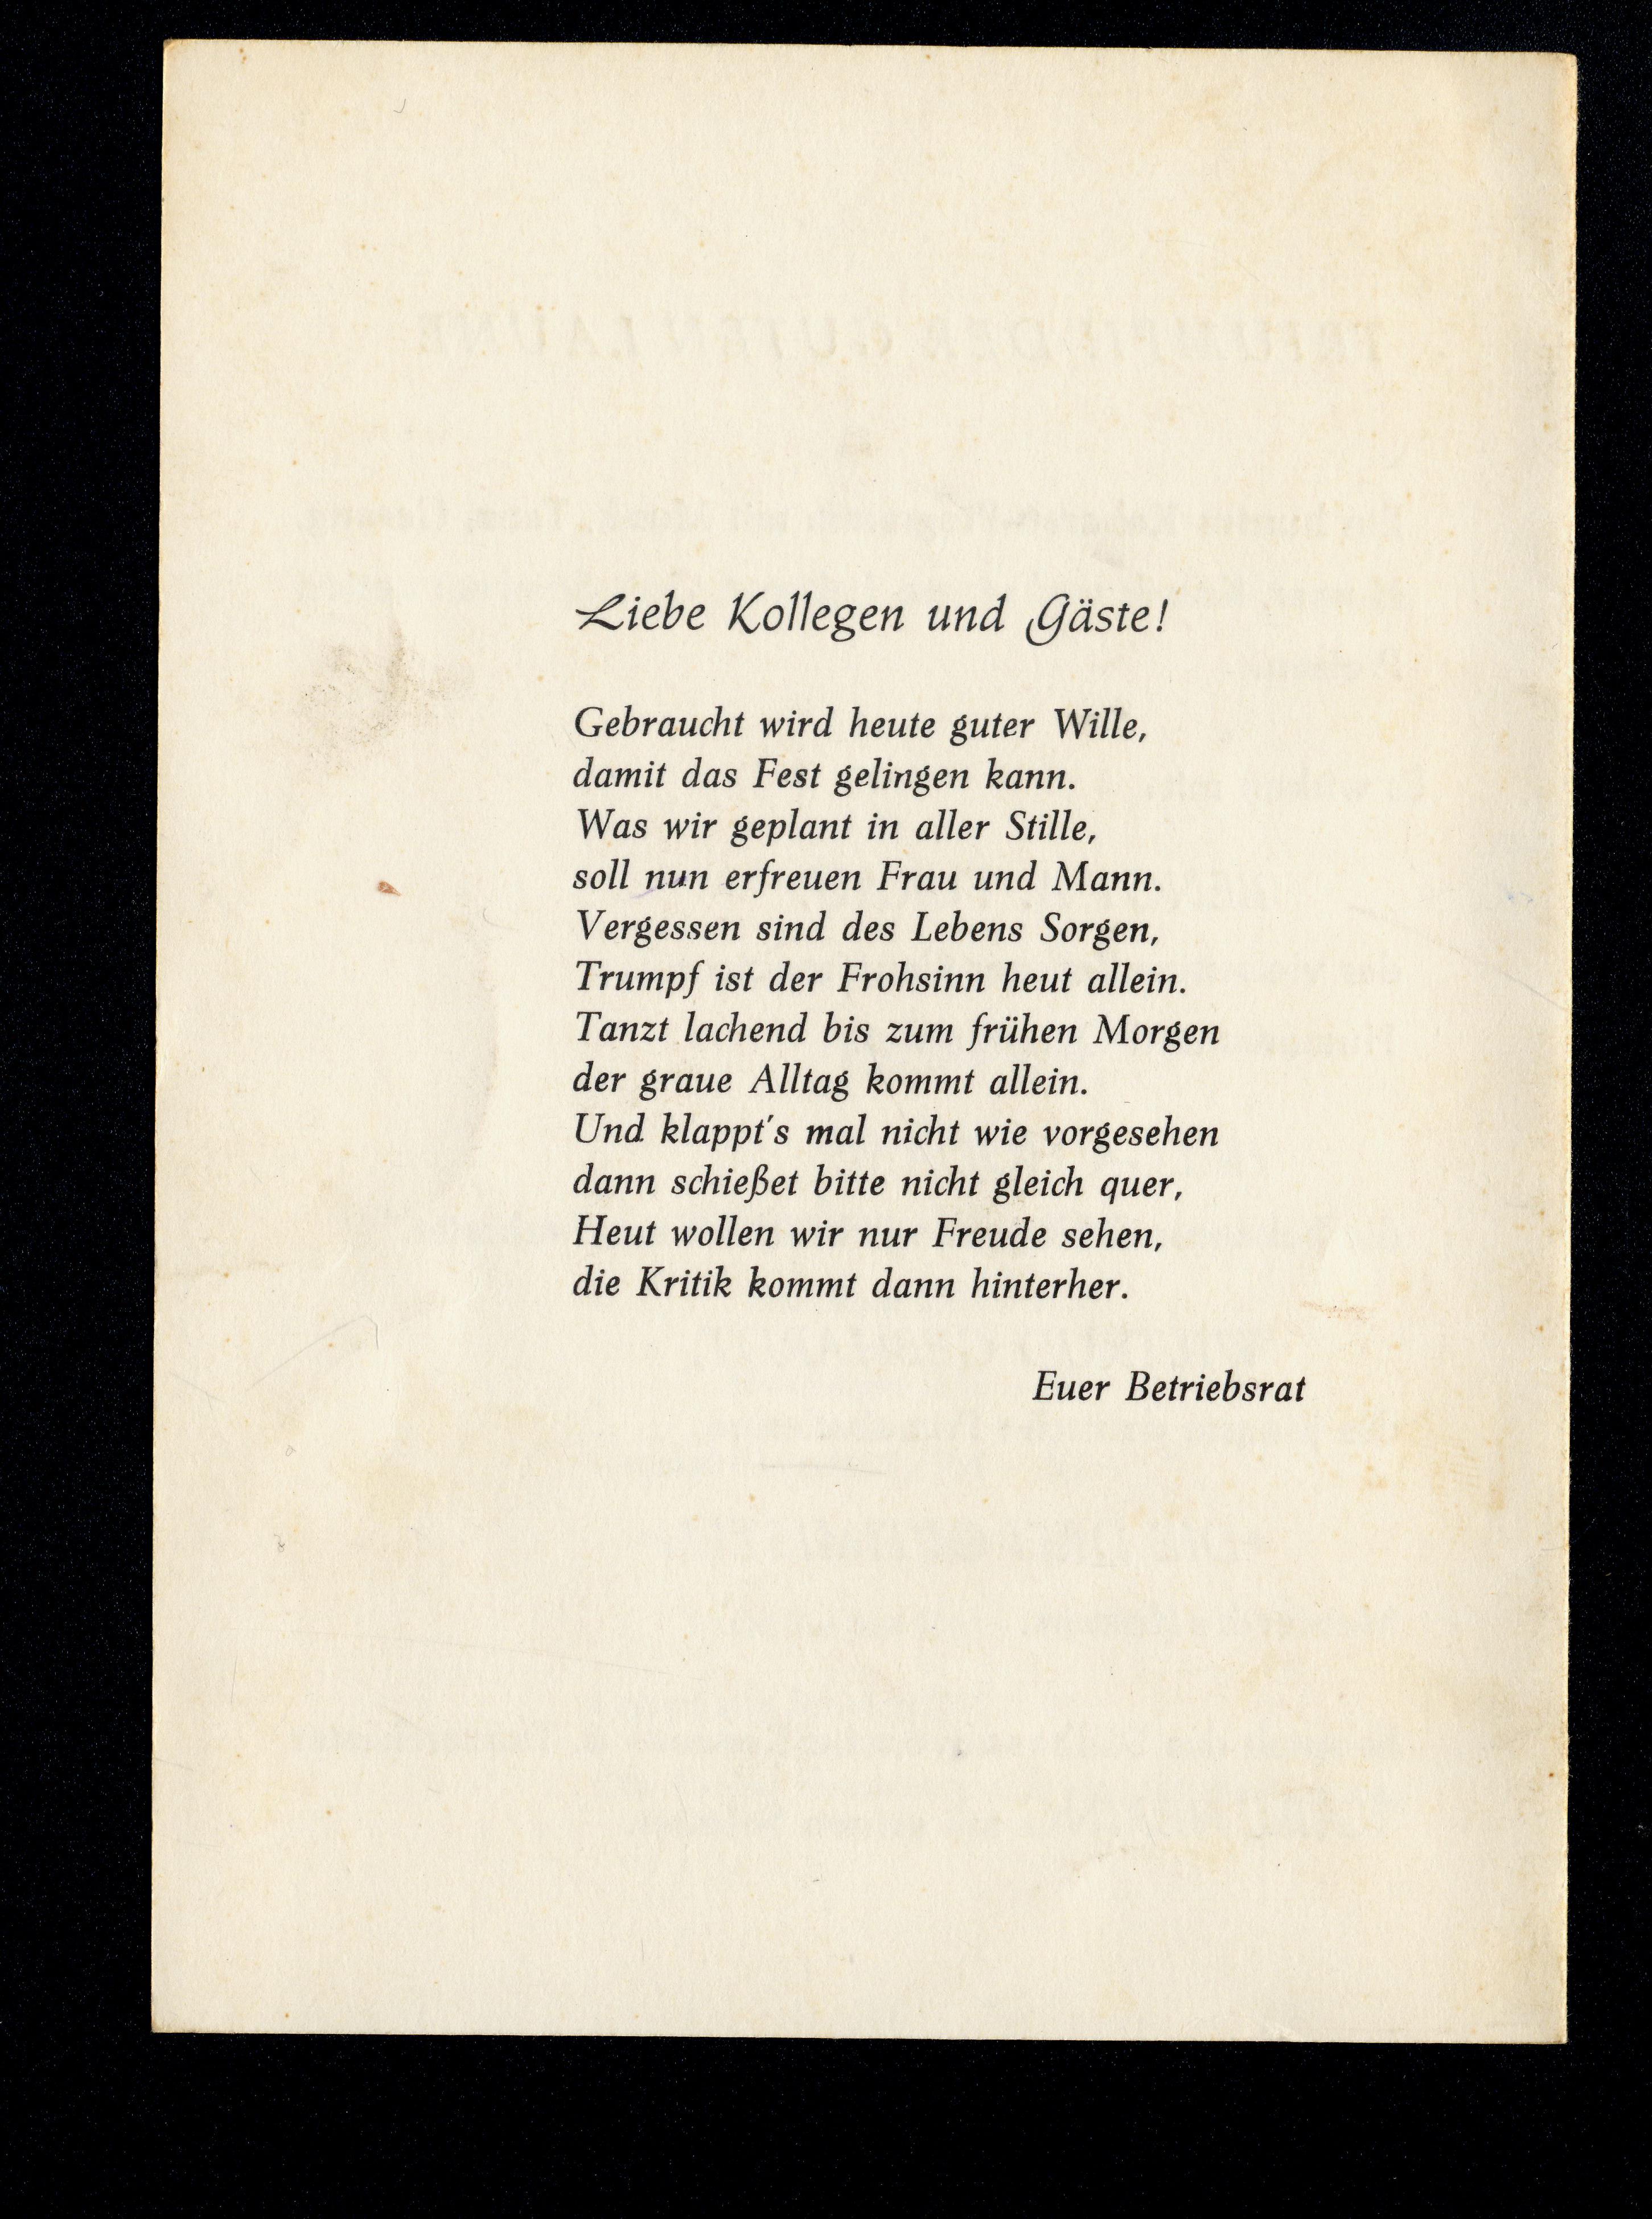 Liebe Kollegen und Gäste!
Gebraucht wird heute guter Wille,
damit das Fest gelingen kann.
Was wir geplant in aller Stille,
soll nun erfreuen Frau und Mann.
Vergessen sind des Lebens Sorgen,
Trumpf ist der Frohsinn heut allein.
Tanzt lachend bis zum frühen Morgen
der graue Alltag kommt allein.
Und klappt's mal nicht wie vorgesehen
dann schießet bitte nicht gleich quer,
Heut wollen wir nur Freude sehen,
die Kritik kommt dann hinterher.
Euer Betriebsrat